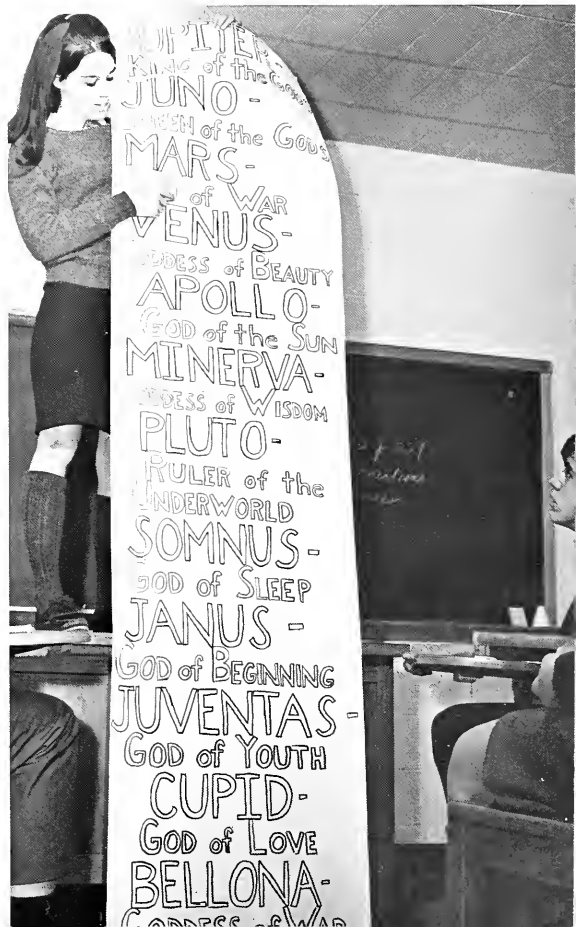 JUPITER-
KING of the Gods
JUNO-
QUEEN of the GODS
MARS-
of WAR
VENUS-
GODDESS of BEAUTY
APOLLO-
GOD of the SUN
MINERVA-
GODDESS of WISDOM
PLUTO-
RULER of the
UNDERWORLD
SOMNUS-
GOD of SLEEP
JANUS-
GOD of BEGINNING
JUVENTAS-
GOD of YOUTH
CUPID-
GOD of LOVE
BELLONA-
GODDESS of WAR